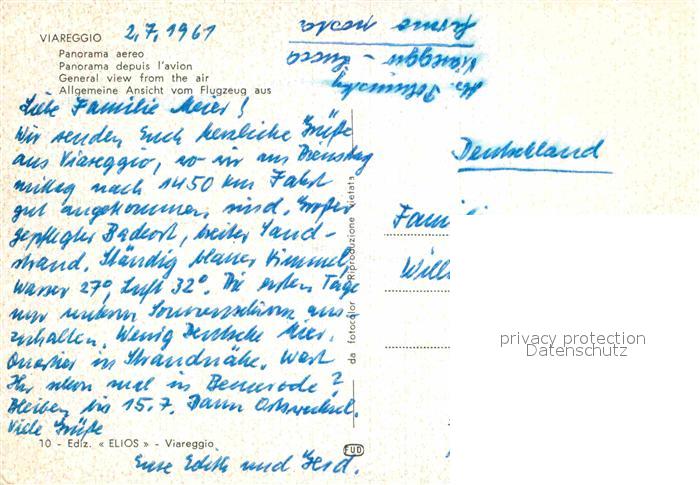 VIAREGGIO 2.7.1961
Panorama aereo
Panorama depuis l'avion
General view from the air
Allgemeine Ansicht vom Flugzeug aus
Liebe Familie Meier!
Wir senden Euch herzliche Grüße
aus Viareggio, wo wir am Dienstag
mittag nach 1450 km Fahrt
gut angekommen sind. Großer
gepflegter Badeort, breiter Sand-
strand. Ständig blauer Himmel,
Wasser 27°, Luft 32°. Die ersten Tage
nur unterm Sonnenschirm aus-
zuhalten. Wenig Deutsche hier.
Quartier in Strandnähe. Wart
Ihr schon mal in Bemerode?
Bleiben bis 15.7. Dann Ortswechsel.
Viele Grüße
Eure Edith und Gerd.
10 - Ediz. « ELIOS » - Viareggio
da fotocolor Riproduzione vietata
FUD
Viareggio - Lucca
Deutschland
Famili
Will
privacy protection
Datenschutz